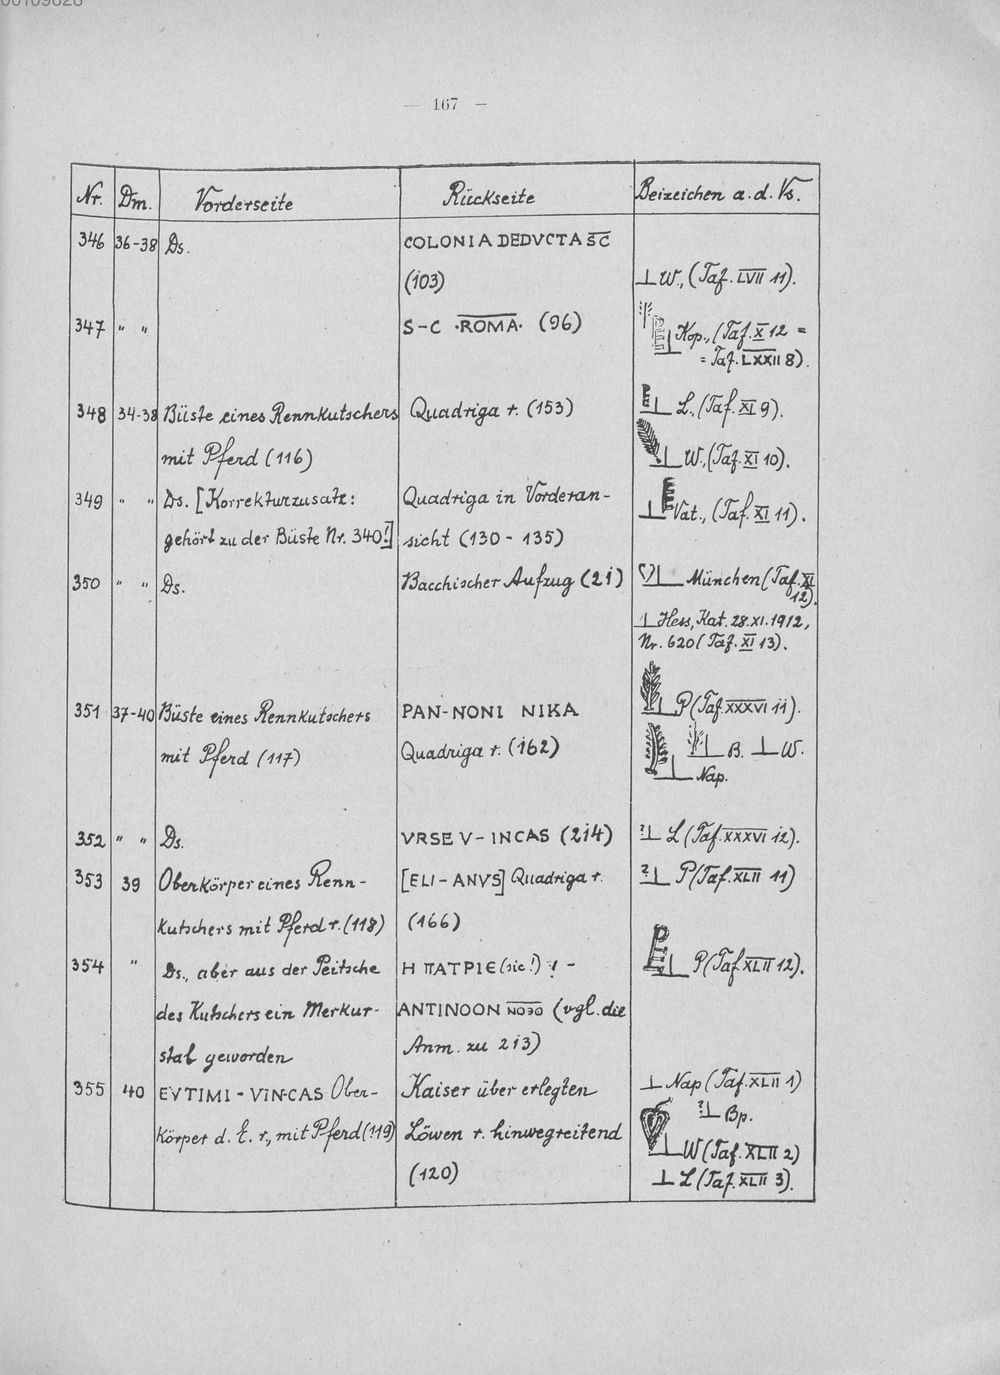 00109828
— 167 —
Nr. Dm. Vorderseite Rückseite Beizeichen a.d. Vs.
346 36-38 Ds. COLONIA DEDVCTA SC
(103) ⊥ W., (Taf. LVII 11).
347 " " S-C ·ROMA· (96) Kop., (Taf. X 12 =
= Taf. LXXII 8).
348 34-38 Büste eines Rennkutschers Quadriga r. (153) L., (Taf. XI 9).
mit Pferd (116) W., (Taf. XI 10).
349 " " Ds. [Korrekturzusatz: Quadriga in Vorderan- Vat., (Taf. XI 11).
gehört zu der Büste Nr. 340!] sicht (130 - 135)
350 " " Ds. Bacchischer Aufzug (21) München (Taf. XI
12).
⊥ Hess, Kat. 28.XI.1912,
Nr. 620 (Taf. XI 13).
351 37-40 Büste eines Rennkutschers PAN-NONI NIKA P (Taf. XXXVI 11).
mit Pferd (117) Quadriga r. (162) B. ⊥ W.
Nap.
352 " " Ds. VRSE V-INCAS (214) ?⊥ L (Taf. XXXVI 12).
353 39 Oberkörper eines Renn- [ELI-ANVS] Quadriga r. ?⊥ P (Taf. XLII 11)
kutschers mit Pferd r. (118) (166)
354 " Ds., aber aus der Peitsche H ΠATPIE (sic!) ! - P (Taf. XLII 12).
des Kutschers ein Merkur- ANTINOON (vgl. die
stab geworden Anm. zu 213)
355 40 EVTIMI-VIN·CAS Ober- Kaiser über erlegten ⊥ Nap (Taf. XLII 1)
körper d. E. r., mit Pferd (119) Löwen r. hinwegreitend ?⊥ Bp.
(120) W (Taf. XLII 2)
⊥ L (Taf. XLII 3).